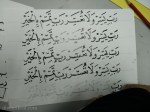 رَبِّ يَسِّرْ وَلَا تُعَسِّرْ رَبِّ تَمِّمْ بِالْخَيْرِ
رَبِّ يَسِّرْ وَلَا تُعَسِّرْ رَبِّ تَمِّمْ بِالْخَيْرِ
رَبِّ يَسِّرْ وَلَا تُعَسِّرْ رَبِّ تَمِّمْ بِالْخَيْرِ
رَبِّ يَسِّرْ وَلَا تُعَسِّرْ رَبِّ تَمِّمْ بِالْخَيْرِ